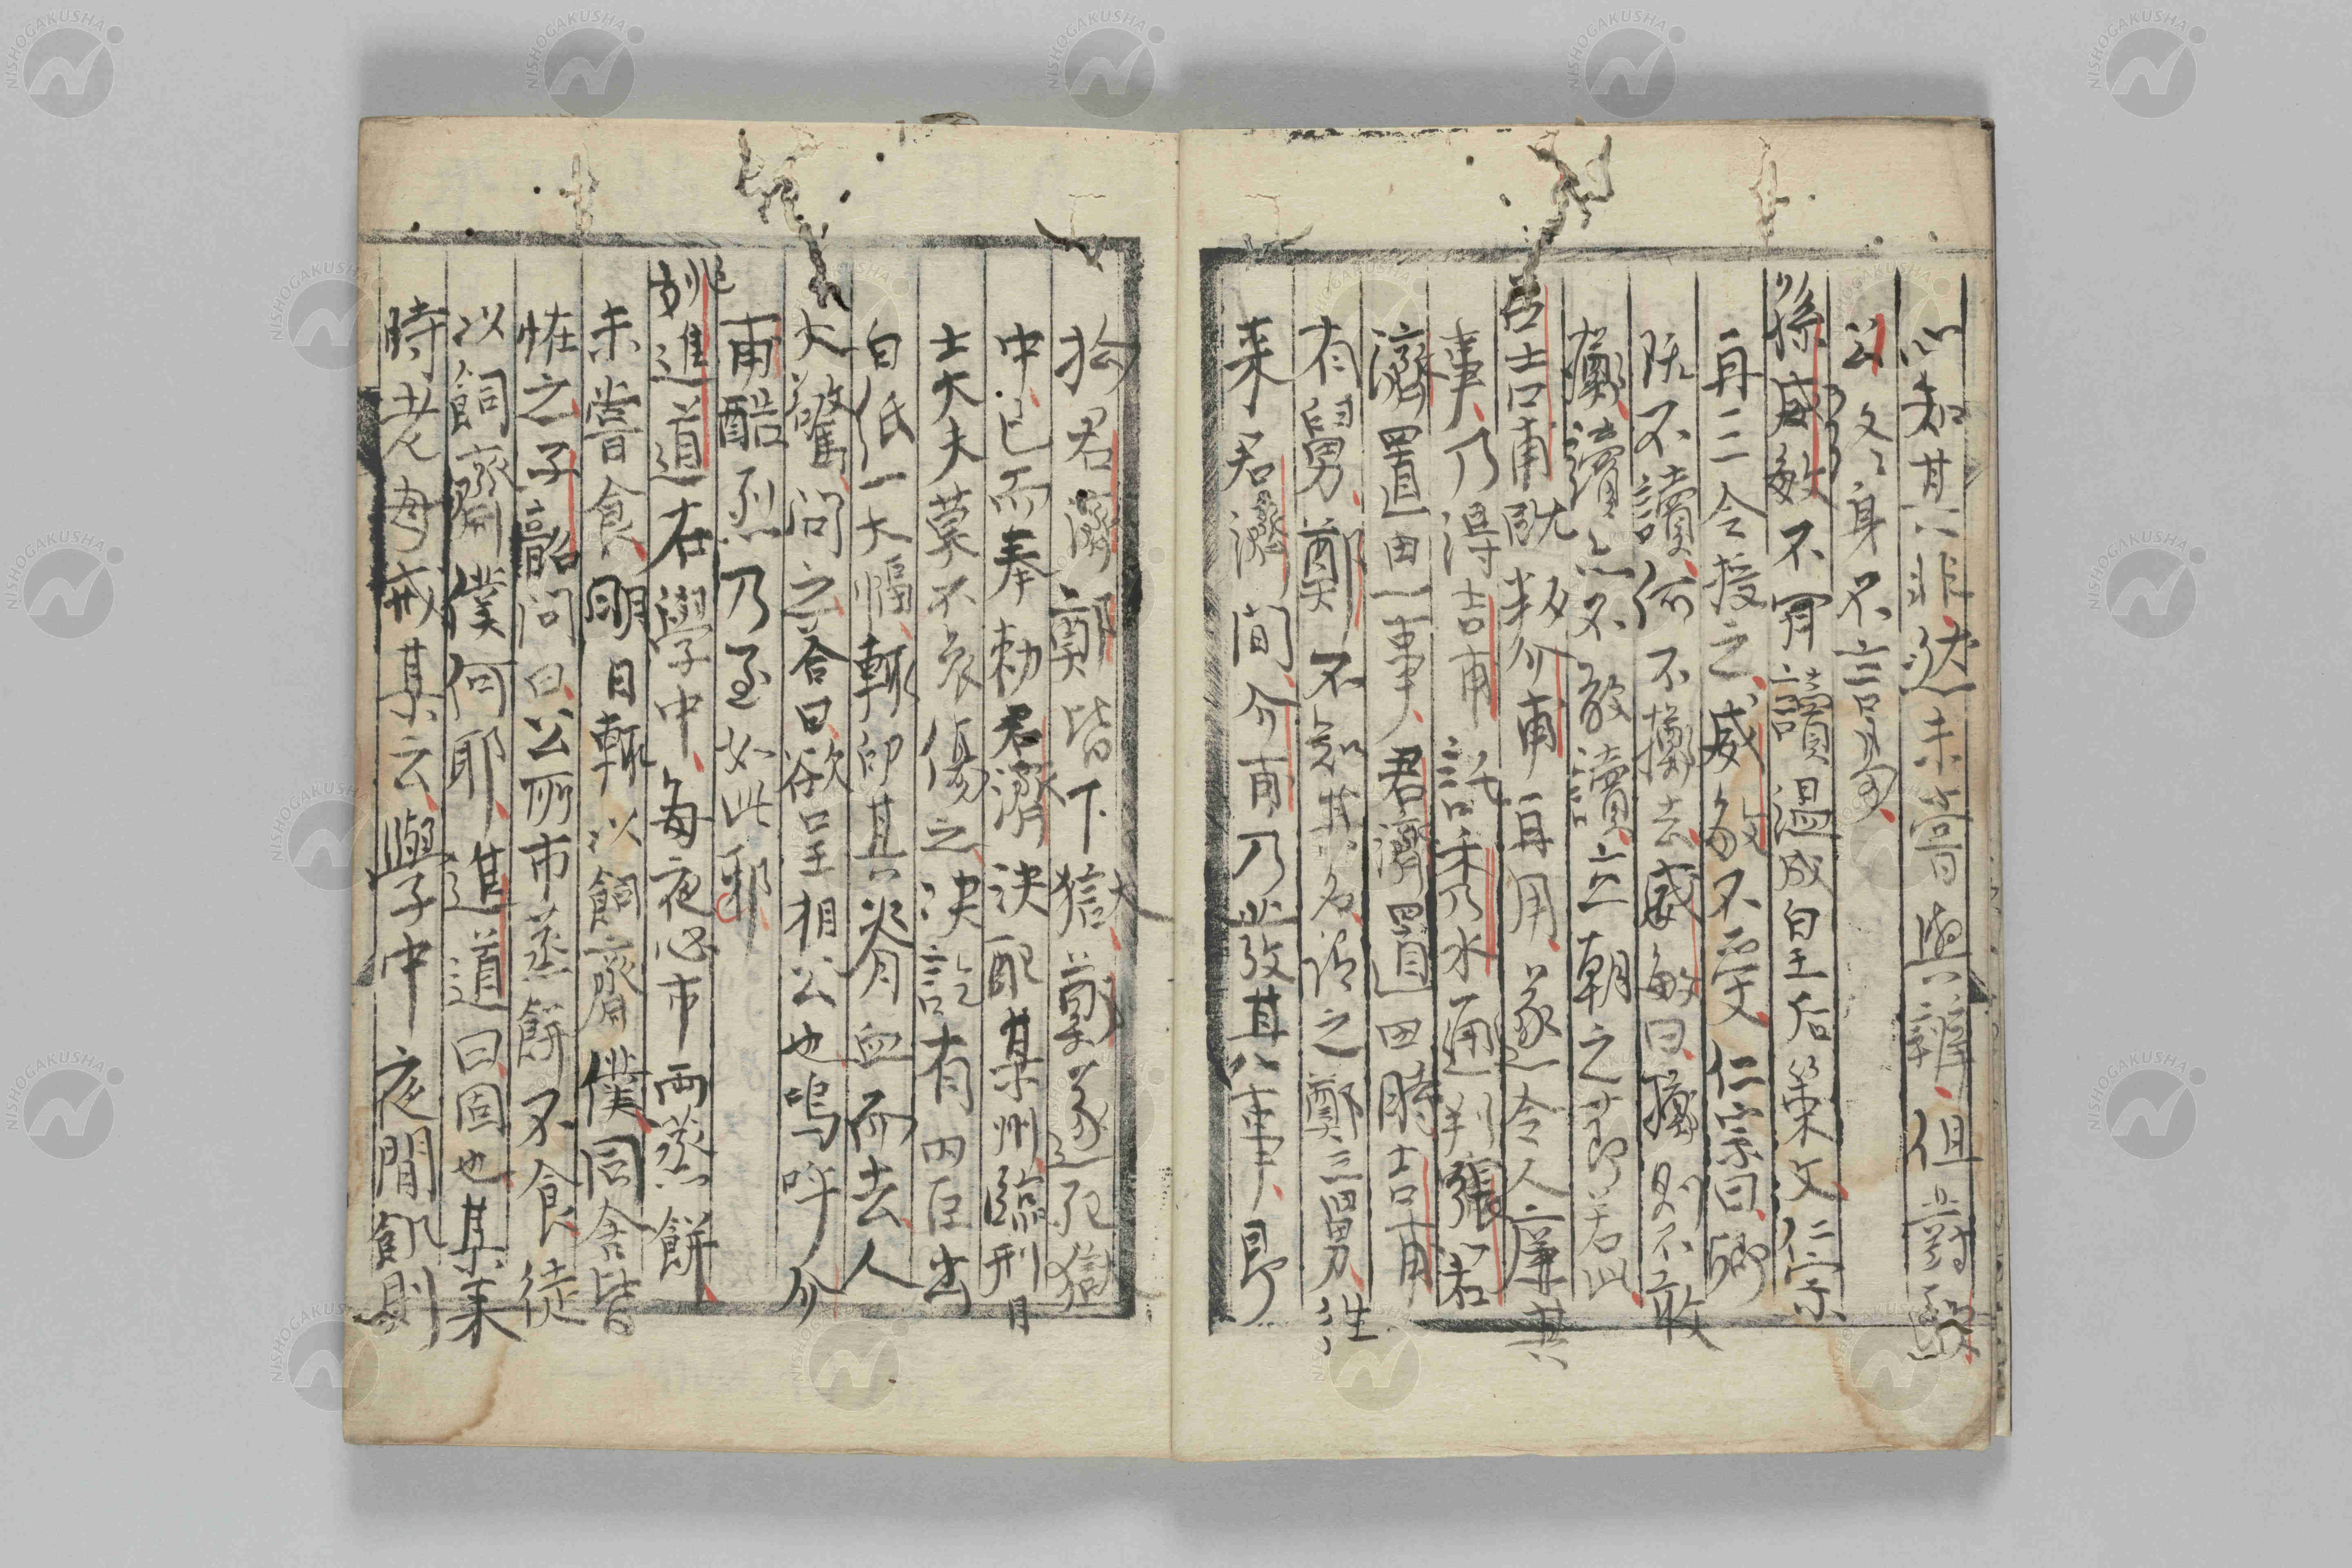 心知其非然未嘗與辯但對聖
公終身不言焉
孫威敏不肯讀溫成皇后策文仁宗
再三令授之威敏不受仁宗曰卿
既不讀何不擲去威敏曰擲則不敢
擲讀亦不敢讀立朝之節若此
呂吉甫既叛介甫再用遂令人廉其
事乃得吉甫託秀水通判張若
濟置田一事君濟置田時吉甫
有舅鄭不知其名謂之鄭三舅往
來君濟間介甫乃出發其事即
拘君濟鄭皆下獄鄭遂死獄
中已而奉勅君濟決配某州臨刑日
士大夫莫不哀傷之決訖有内臣出
白紙一大幅輒印其脊血而去人
大驚問之答曰欲呈相公也嗚呼介
甫酷烈乃至如此邪
姚進道在學中每夜必市兩蒸餅
未嘗食明日輒以飼齋僕同舍皆
恠之子韶問曰公所市蒸餅不食徒
以飼齋僕何耶進道曰固也某來
時老母戒某云學中夜間飢則